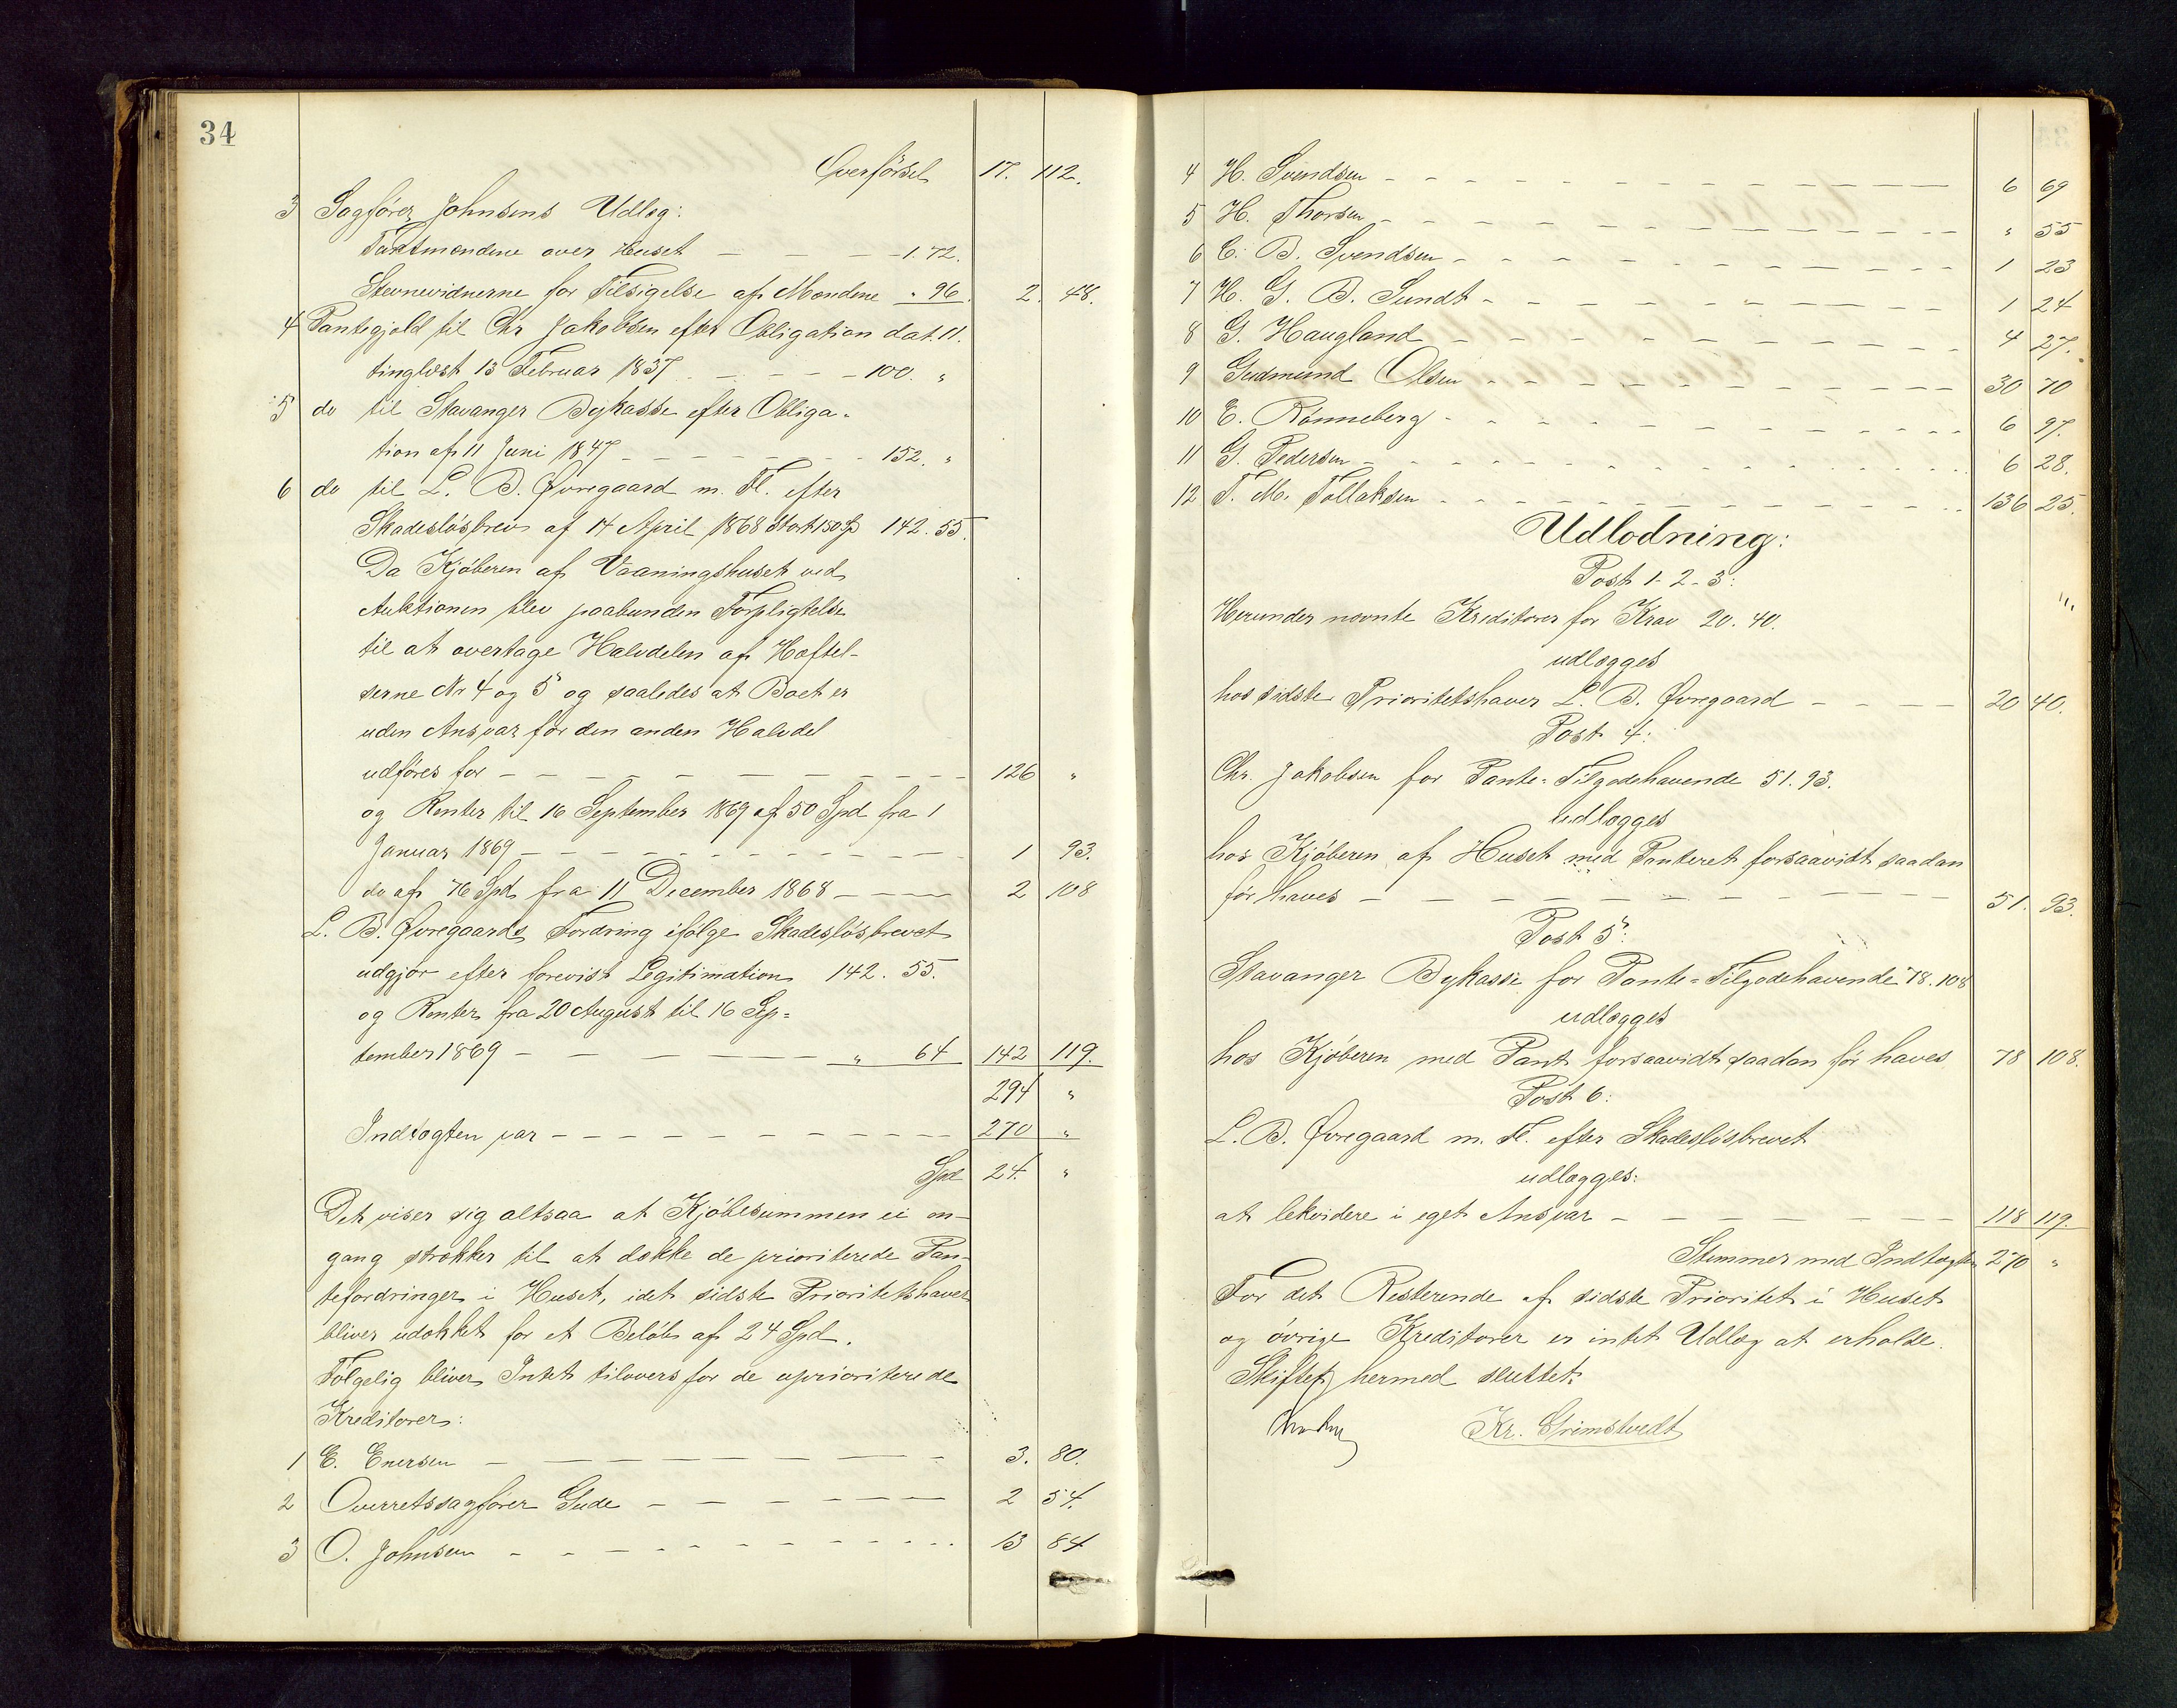 34
Overførsel 17. 112.
3 Sagfører Johnsens Udlæg:
Taxtmændene over Huset - - - 1. 72.
Stevnevidnerne for Tilsigelse af Mændene " 96. 2. 48.
4 Pantegjæld til Chr Jakobsen efter Obligation dat. 11.
tinglæst 13 Februar 1837 - - - - 100. "
5 do til Stavanger Bykasse efter Obliga-
tion af 11 Juni 1847 - - - - - - 152. "
6 do til L. B. Øvregaard m. Fl. efter
Skadesløsbrev af 14 April 1868 stort 150 Spd 142. 55.
Da Kjøberen af Vaaningshuset ved
Auktionen blev paabunden Forpligtelse
til at overtage Halvdelen af Hæftel-
serne No 4 og 5 og saaledes at Boet er
uden Ansvar for den anden Halvdel
udføres for - - - - - - - - - - 126 "
og Renter til 16 September 1869 af 50 Spd fra 1
Januar 1869 - - - - - - - - - - 1 93.
do af 76 Spd fra 11 December 1868 - - - 2 108
L. B. Øvregaards Fordring ifølge Skadesløsbrevet
udgjør efter forevist Legitimation 142. 55.
og Renter fra 20 August til 16 Sep-
tember 1869 - - - - - " 64 142 119.
294 "
Indtægten var - - - - - - - - - - 270 "
Spd 24. "
Det viser sig altsaa at Kjøbesummen ei en-
gang strækker til at dække de prioriterede Pan-
tefordringer i Huset, idet sidste Prioritetshaver
bliver udækket for et Beløb af 24 Spd.
Følgelig bliver Intet tilovers for de uprioriterede
Kreditorer:
1 E. Enersen - - - - - - - - 3. 80.
2 Overretssagfører Gude - - - - - - - 2 54.
3 O. Johnsen - - - - - - - - - - 13 84
4 H. Svendsen - - - - - - - - - - 6 69
5 H. Thorsen - - - - - - - - - - " 55
6 C. B. Svendsen - - - - - - - - - - 1 23
7 H. G. B. Sundt - - - - - - - - - 1 24
8 G. Haugland - - - - - - - - - - 4 27.
9 Gudmund Olsen - - - - - - - - - - 30 70
10 E. Rønneberg - - - - - - - - - - 6 97.
11 G. Pedersen - - - - - - - - - - 6 28.
12 T. M. Tollaksen - - - - - - - - - - 136 25.
Udlodning:
Post 1-2-3:
Herunder nævnte Kreditorer for Krav 20. 40.
udlægges
hos sidste Prioritetshaver L. B. Øvregaard - - - - 20 40.
Post 4:
Chr. Jakobsen for Pante-Tilgodehavende 51. 93.
udlægges
hos Kjøberen af Huset med Panteret forsaavidt saadan
før haves - - - - - - - - - - 51. 93.
Post 5:
Stavanger Bykasse for Pante-Tilgodehavende 78. 108
udlægges
hos Kjøberen med Pant forsaavidt saadan før haves 78 108.
Post 6:
L. B. Øvregaard m. Fl. efter Skadesløsbrevet
udlægges:
at lekvidere i eget Ansvar - - - - - - - 118 119.
Stemmer med Indtægten 270 "
For det Resterende af sidste Prioritet i Huset
og øvrige Kreditorer er intet Udlæg at erholde.
Skiftet hermed sluttet.
Kr. Grimstvedt